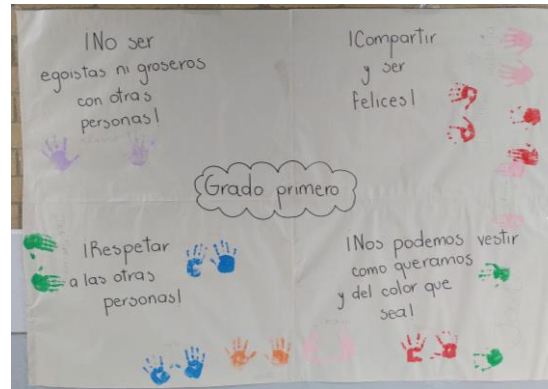 ¡No ser
egoistas ni groseros
con otras
personas!
¡Compartir
y ser
felices!
Grado primero
¡Respetar
a las otras
personas!
¡Nos podemos vestir
como queramos
y del color que
sea!